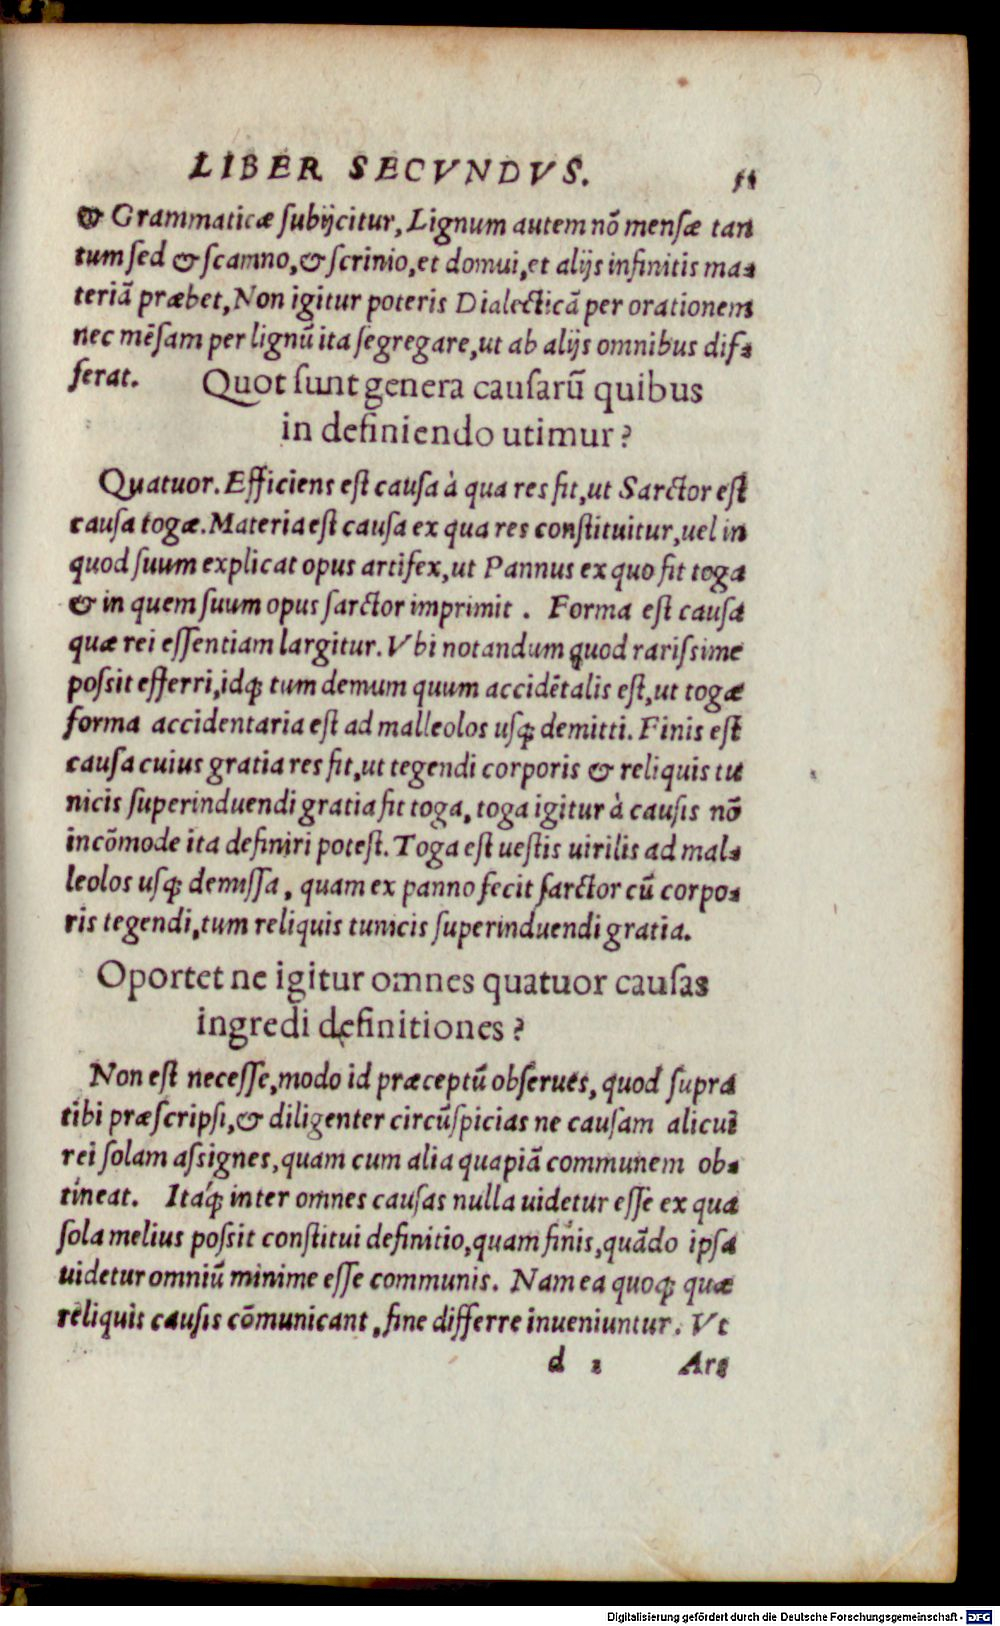 LIBER SECVNDVS.
& Grammaticæ subijcitur, Lignum autem nõ mensæ tan
tum sed & scamno, & scrinio, et domui, et alijs infinitis ma-
teriã præbet, Non igitur poteris Dialecticã per orationem
nec mẽsam per lignũ ita segregare, ut ab alijs omnibus dif-
ferat.
Quot sunt genera causarũ quibus
in definiendo utimur?
Quatuor. Efficiens est causa à qua res fit, ut Sarctor est
causa togæ. Materia est causa ex qua res constituitur, uel in
quod suum explicat opus artifex, ut Pannus ex quo fit toga
& in quem suum opus sarctor imprimit. Forma est causa
quæ rei essentiam largitur. Vbi notandum quod rarissime
possit efferri, idq; tum demum quum accidẽtalis est, ut togæ
forma accidentaria est ad malleolos usq; demitti. Finis est
causa cuius gratia res fit, ut tegendi corporis & reliquis tu
nicis superinduendi gratia fit toga, toga igitur à causis nõ
incõmode ita definiri potest. Toga est uestis uirilis ad mal-
leolos usq; demissa, quam ex panno fecit sarctor cũ corpo-
ris tegendi, tum reliquis tunicis superinduendi gratia.
Oportet ne igitur omnes quatuor causas
ingredi definitiones?
Non est necesse, modo id præceptũ obserues, quod supra
tibi præscripsi, & diligenter circũspicias ne causam alicui
rei solam assignes, quam cum alia quapiã communem ob-
tineat. Itaq; inter omnes causas nulla uidetur esse ex qua
sola melius possit constitui definitio, quam finis, quãdo ipsa
uidetur omniũ minime esse communis. Nam ea quoq; quæ
reliquis causis cõmunicant, fine differre inueniuntur. Vt
d Ars
Digitalisierung gefördert durch die Deutsche Forschungsgemeinschaft - DFG